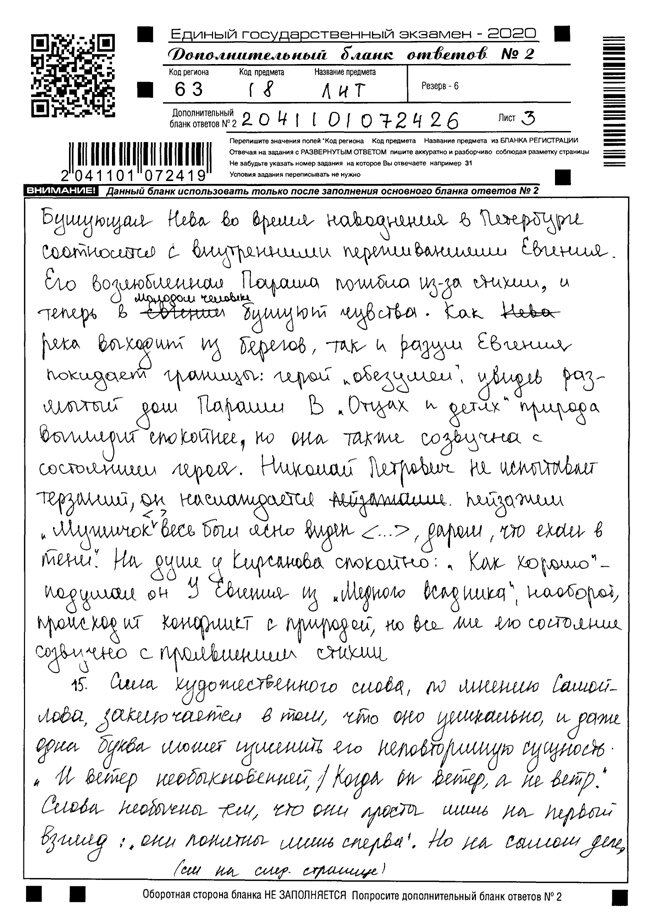 Единый государственный экзамен - 2020
Дополнительный бланк ответов № 2
Код региона Код предмета Название предмета
63 18 ЛИТ Резерв - 6
Дополнительный бланк ответов № 2 2041101072426 Лист 3
Перепишите значения полей "Код региона Код предмета Название предмета из БЛАНКА РЕГИСТРАЦИИ
Отвечая на задания с РАЗВЕРНУТЫМ ОТВЕТОМ пишите аккуратно и разборчиво соблюдая разметку страницы
Не забудьте указать номер задания на которое Вы отвечаете например 31
Условия задания переписывать не нужно
2 041101 072419
ВНИМАНИЕ! Данный бланк использовать только после заполнения основного бланка ответов № 2
Бушующая Нева во время наводнения в Петербурге
соотносится с внутренними переживаниями Евгения.
Его возлюбленная Параша погибла из-за стихии, и
молодом человеке
теперь в Евгении бушуют чувства. Как Нева
река выходит из берегов, так и разум Евгения
покидает границы: герой „обезумел", увидев раз-
мытый дом Параши В „Отцах и детях" природа
выглядит спокойнее, но она также созвучна с
состоянием героя. Николай Петрович не испытывает
терзаний, он наслаждается пейзажем
„Мужичок < > весь был ясно виден <...>, даром, что ехал в
тени". На душе у Кирсанова спокойно: „Как хорошо" -
подумал он У Евгения из „Медного всадника", наоборот,
происходит конфликт с природой, но все же его состояние
созвучно с проявлением стихии
15. Сила художественного слова, по мнению Самой-
лова, заключается в том, что оно уникально, и даже
одна буква может изменить его неповторимую сущность.
„И ветер необыкновенней, / Когда он ветер, а не ветр."
Слова необычны тем, что они просты лишь на первый
взгляд: „они понятны лишь сперва". Но на самом деле,
(см на след. странице)
Оборотная сторона бланка НЕ ЗАПОЛНЯЕТСЯ Попросите дополнительный бланк ответов № 2